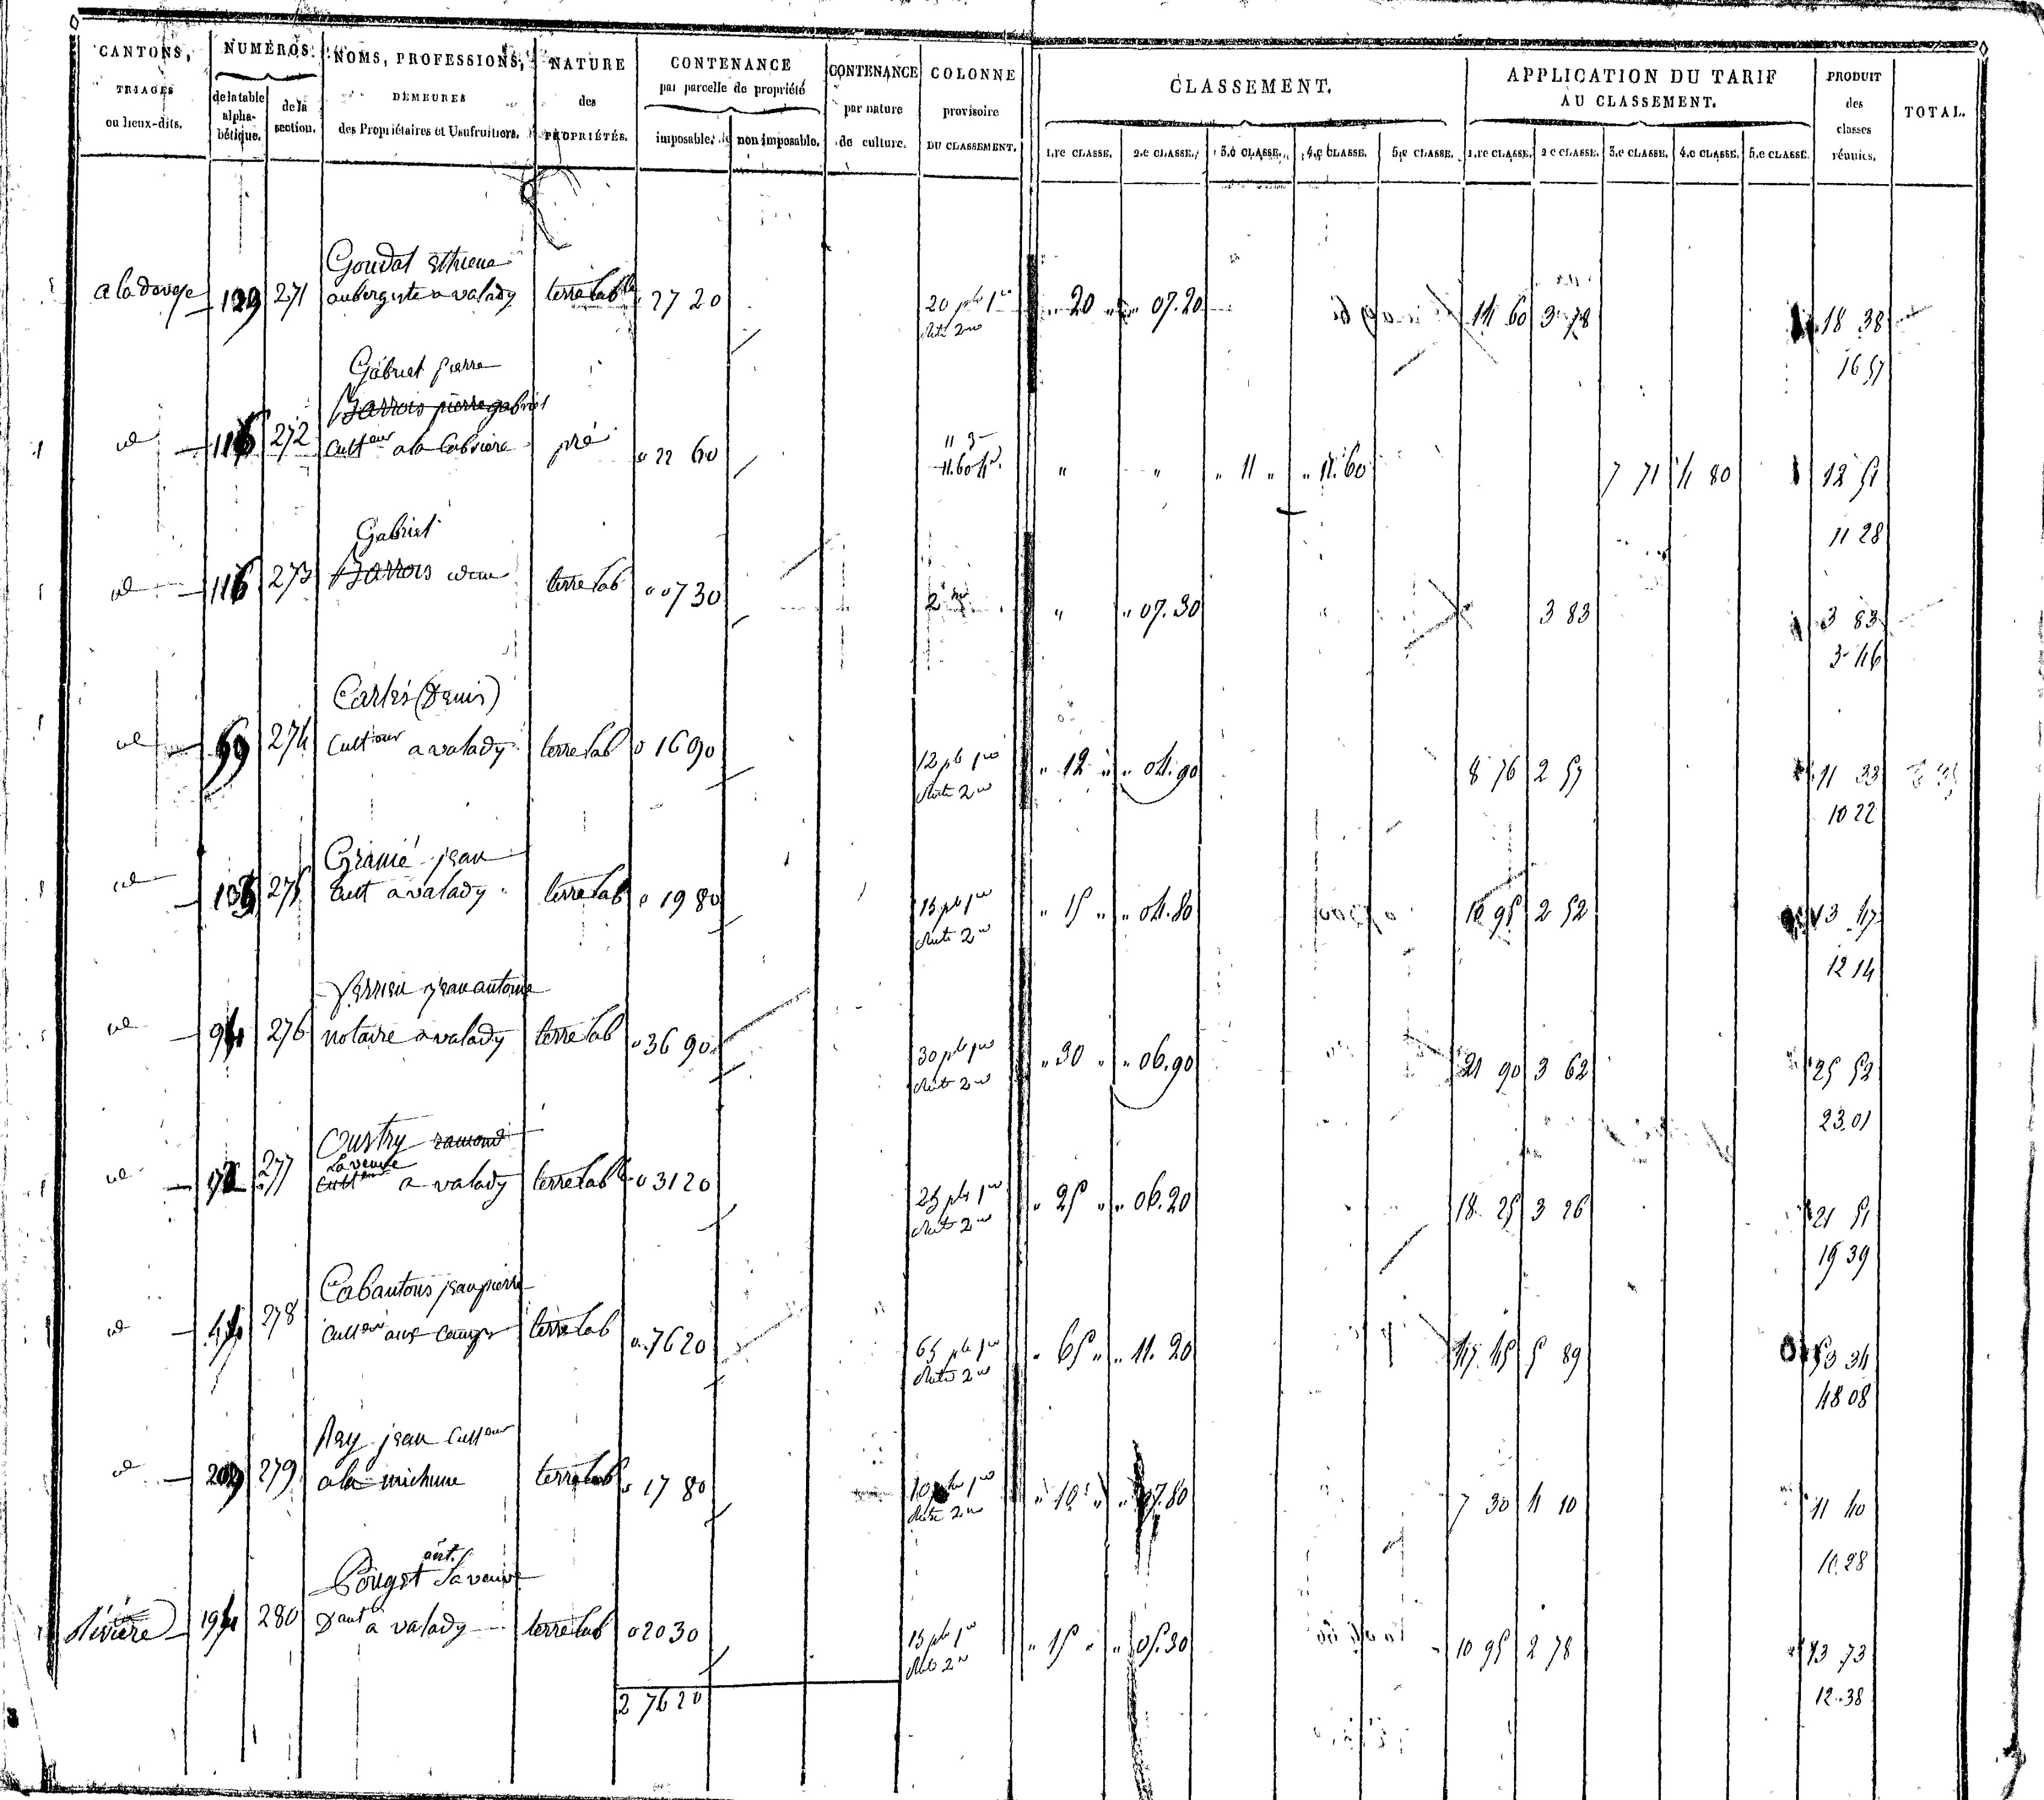 CANTONS, TRIAGES ou lieux-dits.
NUMÉROS: de la table alphabétique. de la section.
NOMS, PROFESSIONS, DEMEURES des Propriétaires et Usufruitiers.
NATURE des PROPRIÉTÉS.
CONTENANCE par parcelle de propriété imposable. non imposable.
CONTENANCE par nature de culture.
COLONNE provisoire DU CLASSEMENT.
CLASSEMENT. 1.re CLASSE. 2.e CLASSE. 3.e CLASSE. 4.e CLASSE. 5.e CLASSE.
APPLICATION DU TARIF AU CLASSEMENT. 1.re CLASSE. 2.e CLASSE. 3.e CLASSE. 4.e CLASSE. 5.e CLASSE.
PRODUIT des classes réunies.
TOTAL.
Goudal Ethiene
271 aubergiste a valady terre lab.le 27 20 20 pls 1re " 20 " " 07.20 14 60 3 78 18 38
Reste 2me
16 57
Gabriel pierre
Barrois pierre gabriel
id 116 272 Cult.eur a la Cabriere pré " 22 60 11 3e
11.60 4e " " " 11 " " 11.60 7 71 4 80 12 51
11 28
Gabriel
id 116 273 Barrois idem terre lab " 07 30 2me " " 07.30 3 83 3 83
3 46
Carles (Denis)
id 69 274 Cult.eur a valady terre lab 0 16 90 12 pls 1re " 12 " " 04.90 8 76 2 57 11 33
Reste 2me
10 22
Granié jean
id 275 Cult a valady terre lab 0 19 80 15 pls 1re " 15 " " 04.80 10 95 2 52 13 47
Reste 2me
12 14
Ferrieu jean antoine
id 94 276 notaire a valady terre lab " 36 90 30 pls 1re " 30 " " 06.90 21 90 3 62 25 52
Reste 2me
23.01
Coustry ramond
la veuve
id 72 277 Cult.eur a valady terre lab.le 0 31 20 25 pls 1re " 25 " " 06.20 18 25 3 26 21 51
Reste 2me
19 39
Cabantous jean pierre
id 44 278 Cult.eur aux Camps terre lab 0 76 20 65 pls 1re " 65 " " 11.20 47 45 5 89 53 34
Reste 2me
48 08
Rey jean Cult.eur
id 209 279 a la michune terre lab 0 17 80 10 pls 1re " 10 " " 07.80 7 30 4 10 11 40
Reste 2me
10.28
ant.
Pouget la veuve
Rivière 194 280 D'ant a valady terre lab 0 20 30 15 pls 1re " 15 " " 05.30 10 95 2 78 13 73
Reste 2me
12.38
2 76 20